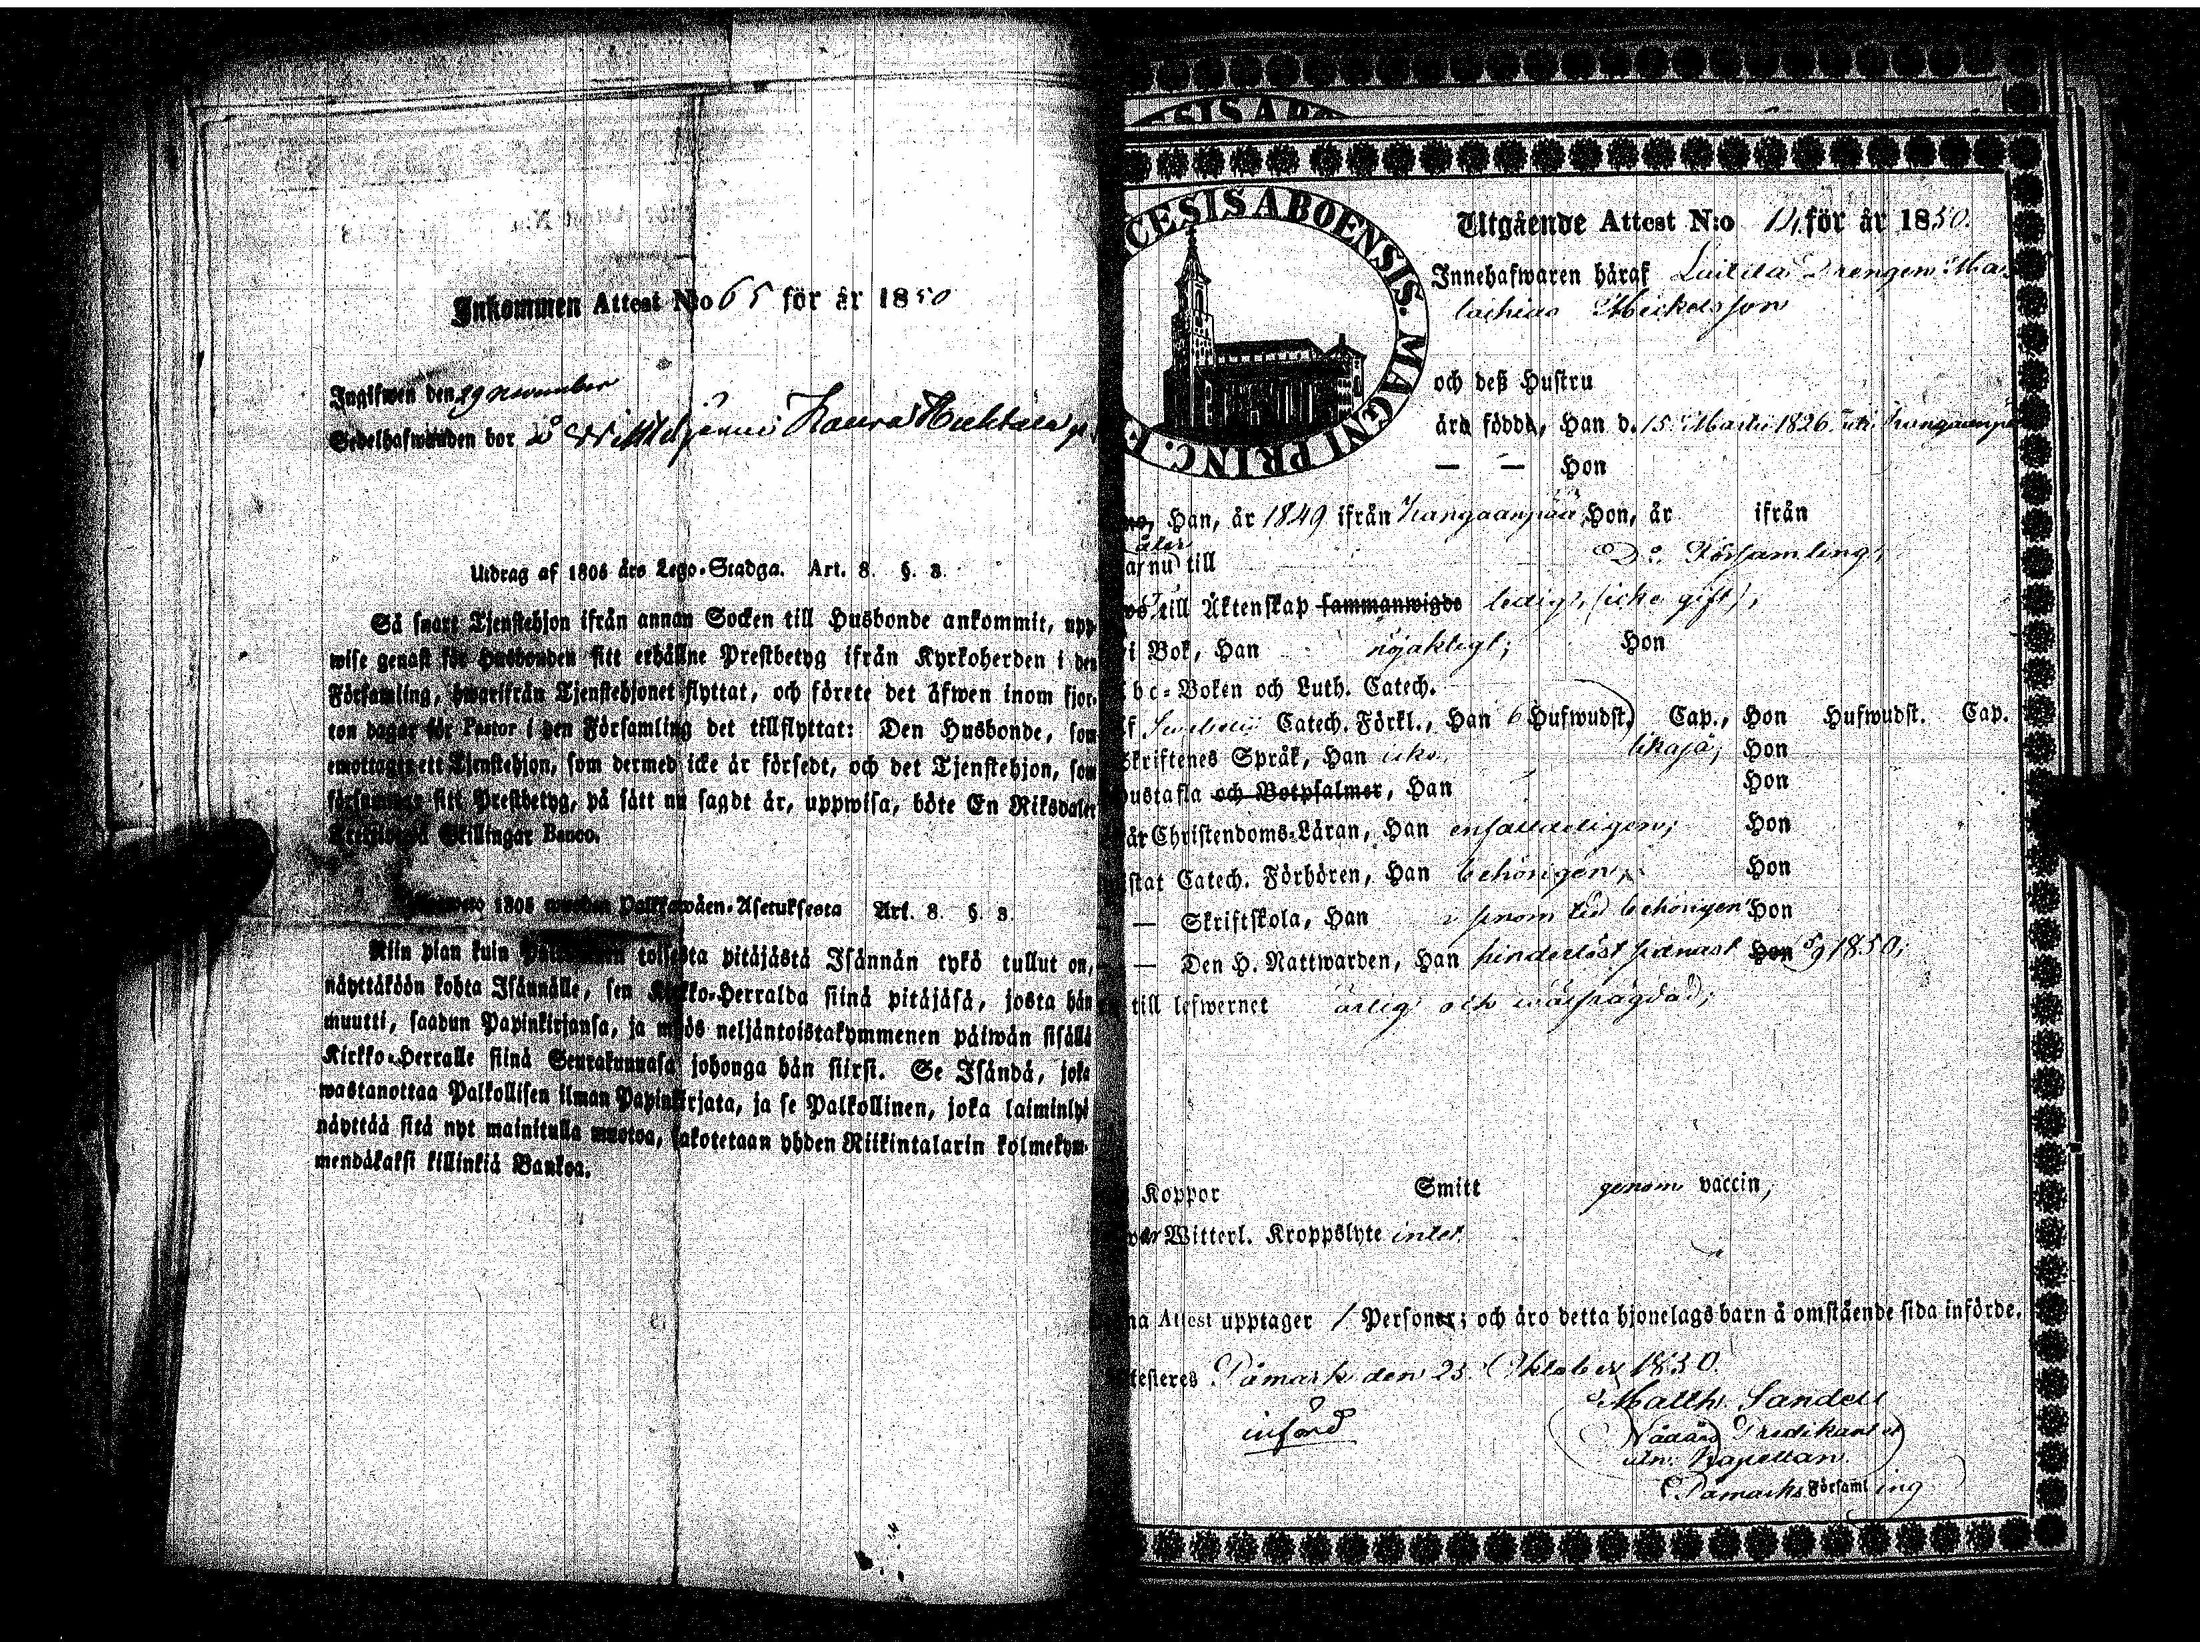 Inkommen Attest N:o 65 för år 1850
Ingifwen den 29 november
Sedelhafwanden bor å
Utdrag af 1805 års Lego-Stadga. Art. 8. §. 8.
Så snart Tjenstehjon ifrån annan Socken till Husbonde ankommit, upp-
wise genast för Husbonden sitt erhållne Prestbetyg ifrån Kyrkoherden i den
Församling, hwarifrån Tjenstehjonet flyttat, och förete det äfwen inom fjor-
ton dagar för Pastor i den Församling det tillflyttat: Den Husbonde, som
emottager ett Tjenstehjon, som dermed icke är försedt, och det Tjenstehjon, som
försummar sitt Prestbetyg, på sätt nu sagdt är, uppwisa, böte En Riksdaler
Skillingar Banco.
1805 wuoden Palkkawäen-Asetuksesta Art. 8. §. 8.
Niin pian kuin toisesta pitäjästä Isännän tykö tullut on,
näyttäköön kohta Isännälle, sen Kirkko-Herralda siinä pitäjäsä, josta hän
muutti, saadun Papinkirjansa, ja myös neljäntoistakymmenen päiwän sisällä
Kirkko-Herralle siinä Seurakunnasa johonga hän siirst. Se Isändä, joka
wastanottaa Palkollisen ilman Papinkirjata, ja se Palkollinen, joka laiminlyö
näyttää sitä nyt mainitulla muotoa, sakotetaan yhden Riikintalarin kolmekym-
mendäkaksi killinkiä Bankoa.
CESIS ABOENSIS. MAGNI PRINC. F
Utgående Attest N:o 14. för år 1850.
Innehafwaren häraf Drengen Mat
Michelsson
och deß Hustru
äro födde, Han d. 15 Martii 1826 uti Kangaanpä
— — Hon
Han, år 1849 ifrån Kangaanpää, Hon, år ifrån
åter
nu till Do Församling;
till Äktenskap sammanwigde ledig, (icke gift);
i Bok, Han nöjaktigt; Hon
bc-Boken och Luth. Catech.
af Swebelii Catech. Förkl., Han 6 Hufwudst. Cap., Hon Hufwudst. Cap.
Skriftenes Språk, Han likaså; Hon
Hustafla och Botpsalmer, Han Hon
är Christendoms-Läran, Han enfaldeligen; Hon
stat Catech. Förhören, Han behörigen, Hon
— Skriftskola, Han behörigen Hon
— Den H. Nattwarden, Han hinderlöst senast Hon 1850;
till lefwernet ärlig och wälfrägdad;
Koppor Smitt genom vaccin;
Witterl. Kroppslyte intet.
na Attest upptager 1 Personer; och äro detta hjonelags barn å omstående sida införde.
testeres Påmark den 23. Oktober 1850.
Matth. Sandell
införd
Predikant
Kapellan.
Påmarks Församling